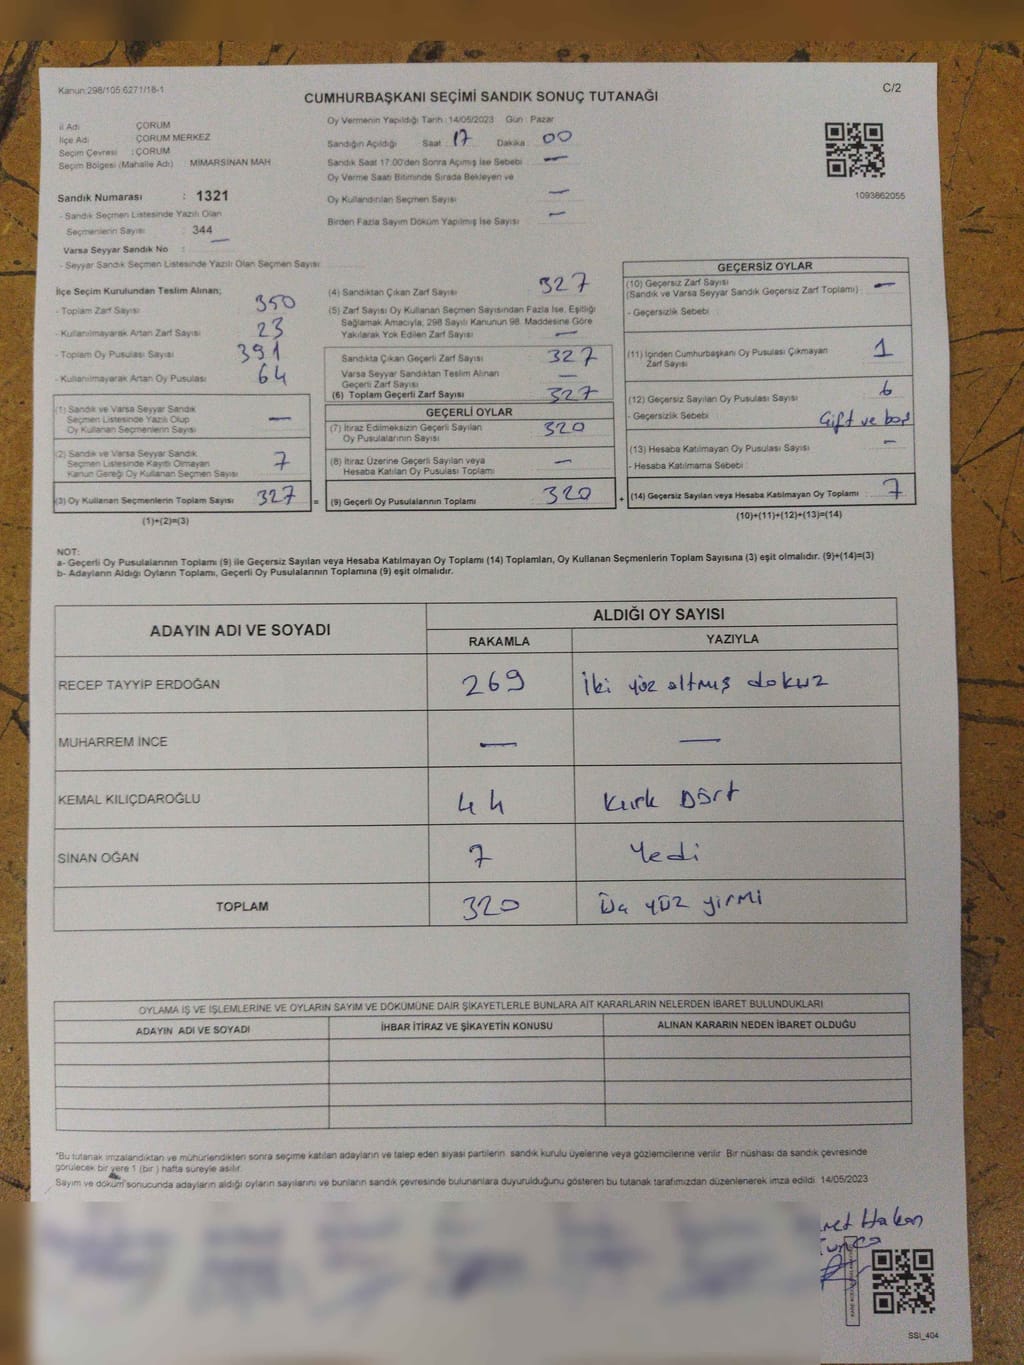 Kanun:298/105;6271/18-1
C/2
CUMHURBAŞKANI SEÇİMİ SANDIK SONUÇ TUTANAĞI
İl Adı : ÇORUM
İlçe Adı : ÇORUM MERKEZ
Seçim Çevresi : ÇORUM
Seçim Bölgesi (Mahalle Adı) : MİMARSİNAN MAH
Sandık Numarası : 1321
- Sandık Seçmen Listesinde Yazılı Olan
Seçmenlerin Sayısı : 344
Varsa Seyyar Sandık No : —
- Seyyar Sandık Seçmen Listesinde Yazılı Olan Seçmen Sayısı
Oy Vermenin Yapıldığı Tarih : 14/05/2023 Gün : Pazar
Sandığın Açıldığı Saat : 17 Dakika : 00
Sandık Saat 17.00'den Sonra Açılmış İse Sebebi : —
Oy Verme Saati Bitiminde Sırada Bekleyen ve
Oy Kullandırılan Seçmen Sayısı : —
Birden Fazla Sayım Döküm Yapılmış İse Sayısı : —
1093862055
İlçe Seçim Kurulundan Teslim Alınan;
- Toplam Zarf Sayısı : 350
- Kullanılmayarak Artan Zarf Sayısı : 23
- Toplam Oy Pusulası Sayısı : 391
- Kullanılmayarak Artan Oy Pusulası : 64
(1) Sandık ve Varsa Seyyar Sandık
Seçmen Listesinde Yazılı Olup
Oy Kullanan Seçmenlerin Sayısı : —
(2) Sandık ve Varsa Seyyar Sandık
Seçmen Listesinde Kayıtlı Olmayan
Kanun Gereği Oy Kullanan Seçmen Sayısı : 7
(3) Oy Kullanan Seçmenlerin Toplam Sayısı : 327 =
(1)+(2)=(3)
(4) Sandıktan Çıkan Zarf Sayısı : 327
(5) Zarf Sayısı Oy Kullanan Seçmen Sayısından Fazla İse, Eşitliği
Sağlamak Amacıyla, 298 Sayılı Kanunun 98. Maddesine Göre
Yakılarak Yok Edilen Zarf Sayısı : —
Sandıkta Çıkan Geçerli Zarf Sayısı : 327
Varsa Seyyar Sandıktan Teslim Alınan
Geçerli Zarf Sayısı : —
(6) Toplam Geçerli Zarf Sayısı : 327
GEÇERLİ OYLAR
(7) İtiraz Edilmeksizin Geçerli Sayılan
Oy Pusulalarının Sayısı : 320
(8) İtiraz Üzerine Geçerli Sayılan veya
Hesaba Katılan Oy Pusulası Toplamı : —
(9) Geçerli Oy Pusulalarının Toplamı : 320 +
GEÇERSİZ OYLAR
(10) Geçersiz Zarf Sayısı : —
(Sandık ve Varsa Seyyar Sandık Geçersiz Zarf Toplamı)
- Geçersizlik Sebebi :
(11) İçinden Cumhurbaşkanı Oy Pusulası Çıkmayan
Zarf Sayısı : 1
(12) Geçersiz Sayılan Oy Pusulası Sayısı : 6
- Geçersizlik Sebebi : Çift ve boş
(13) Hesaba Katılmayan Oy Pusulası Sayısı : —
- Hesaba Katılmama Sebebi :
(14) Geçersiz Sayılan veya Hesaba Katılmayan Oy Toplamı : 7
(10)+(11)+(12)+(13)=(14)
NOT:
a- Geçerli Oy Pusulalarının Toplamı (9) ile Geçersiz Sayılan veya Hesaba Katılmayan Oy Toplamı (14) Toplamları, Oy Kullanan Seçmenlerin Toplam Sayısına (3) eşit olmalıdır. (9)+(14)=(3)
b- Adayların Aldığı Oyların Toplamı, Geçerli Oy Pusulalarının Toplamına (9) eşit olmalıdır.
ADAYIN ADI VE SOYADI
ALDIĞI OY SAYISI
RAKAMLA YAZIYLA
RECEP TAYYİP ERDOĞAN 269 İki yüz altmış dokuz
MUHARREM İNCE — —
KEMAL KILIÇDAROĞLU 44 Kırk Dört
SİNAN OĞAN 7 Yedi
TOPLAM 320 Üç yüz yirmi
OYLAMA İŞ VE İŞLEMLERİNE VE OYLARIN SAYIM VE DÖKÜMÜNE DAİR ŞİKAYETLERLE BUNLARA AİT KARARLARIN NELERDEN İBARET BULUNDUKLARI
ADAYIN ADI VE SOYADI İHBAR İTİRAZ VE ŞİKAYETİN KONUSU ALINAN KARARIN NEDEN İBARET OLDUĞU
*Bu tutanak imzalandıktan ve mühürlendikten sonra seçime katılan adayların ve talep eden siyasi partilerin, sandık kurulu üyelerine veya gözlemcilerine verilir. Bir nüshası da sandık çevresinde
görülecek bir yere 1 (bir ) hafta süreyle asılır.
Sayım ve döküm sonucunda adayların aldığı oyların sayılarını ve bunların sandık çevresinde bulunanlara duyurulduğunu gösteren bu tutanak tarafımızdan düzenlenerek imza edildi. 14/05/2023
Hakan
SSI_404